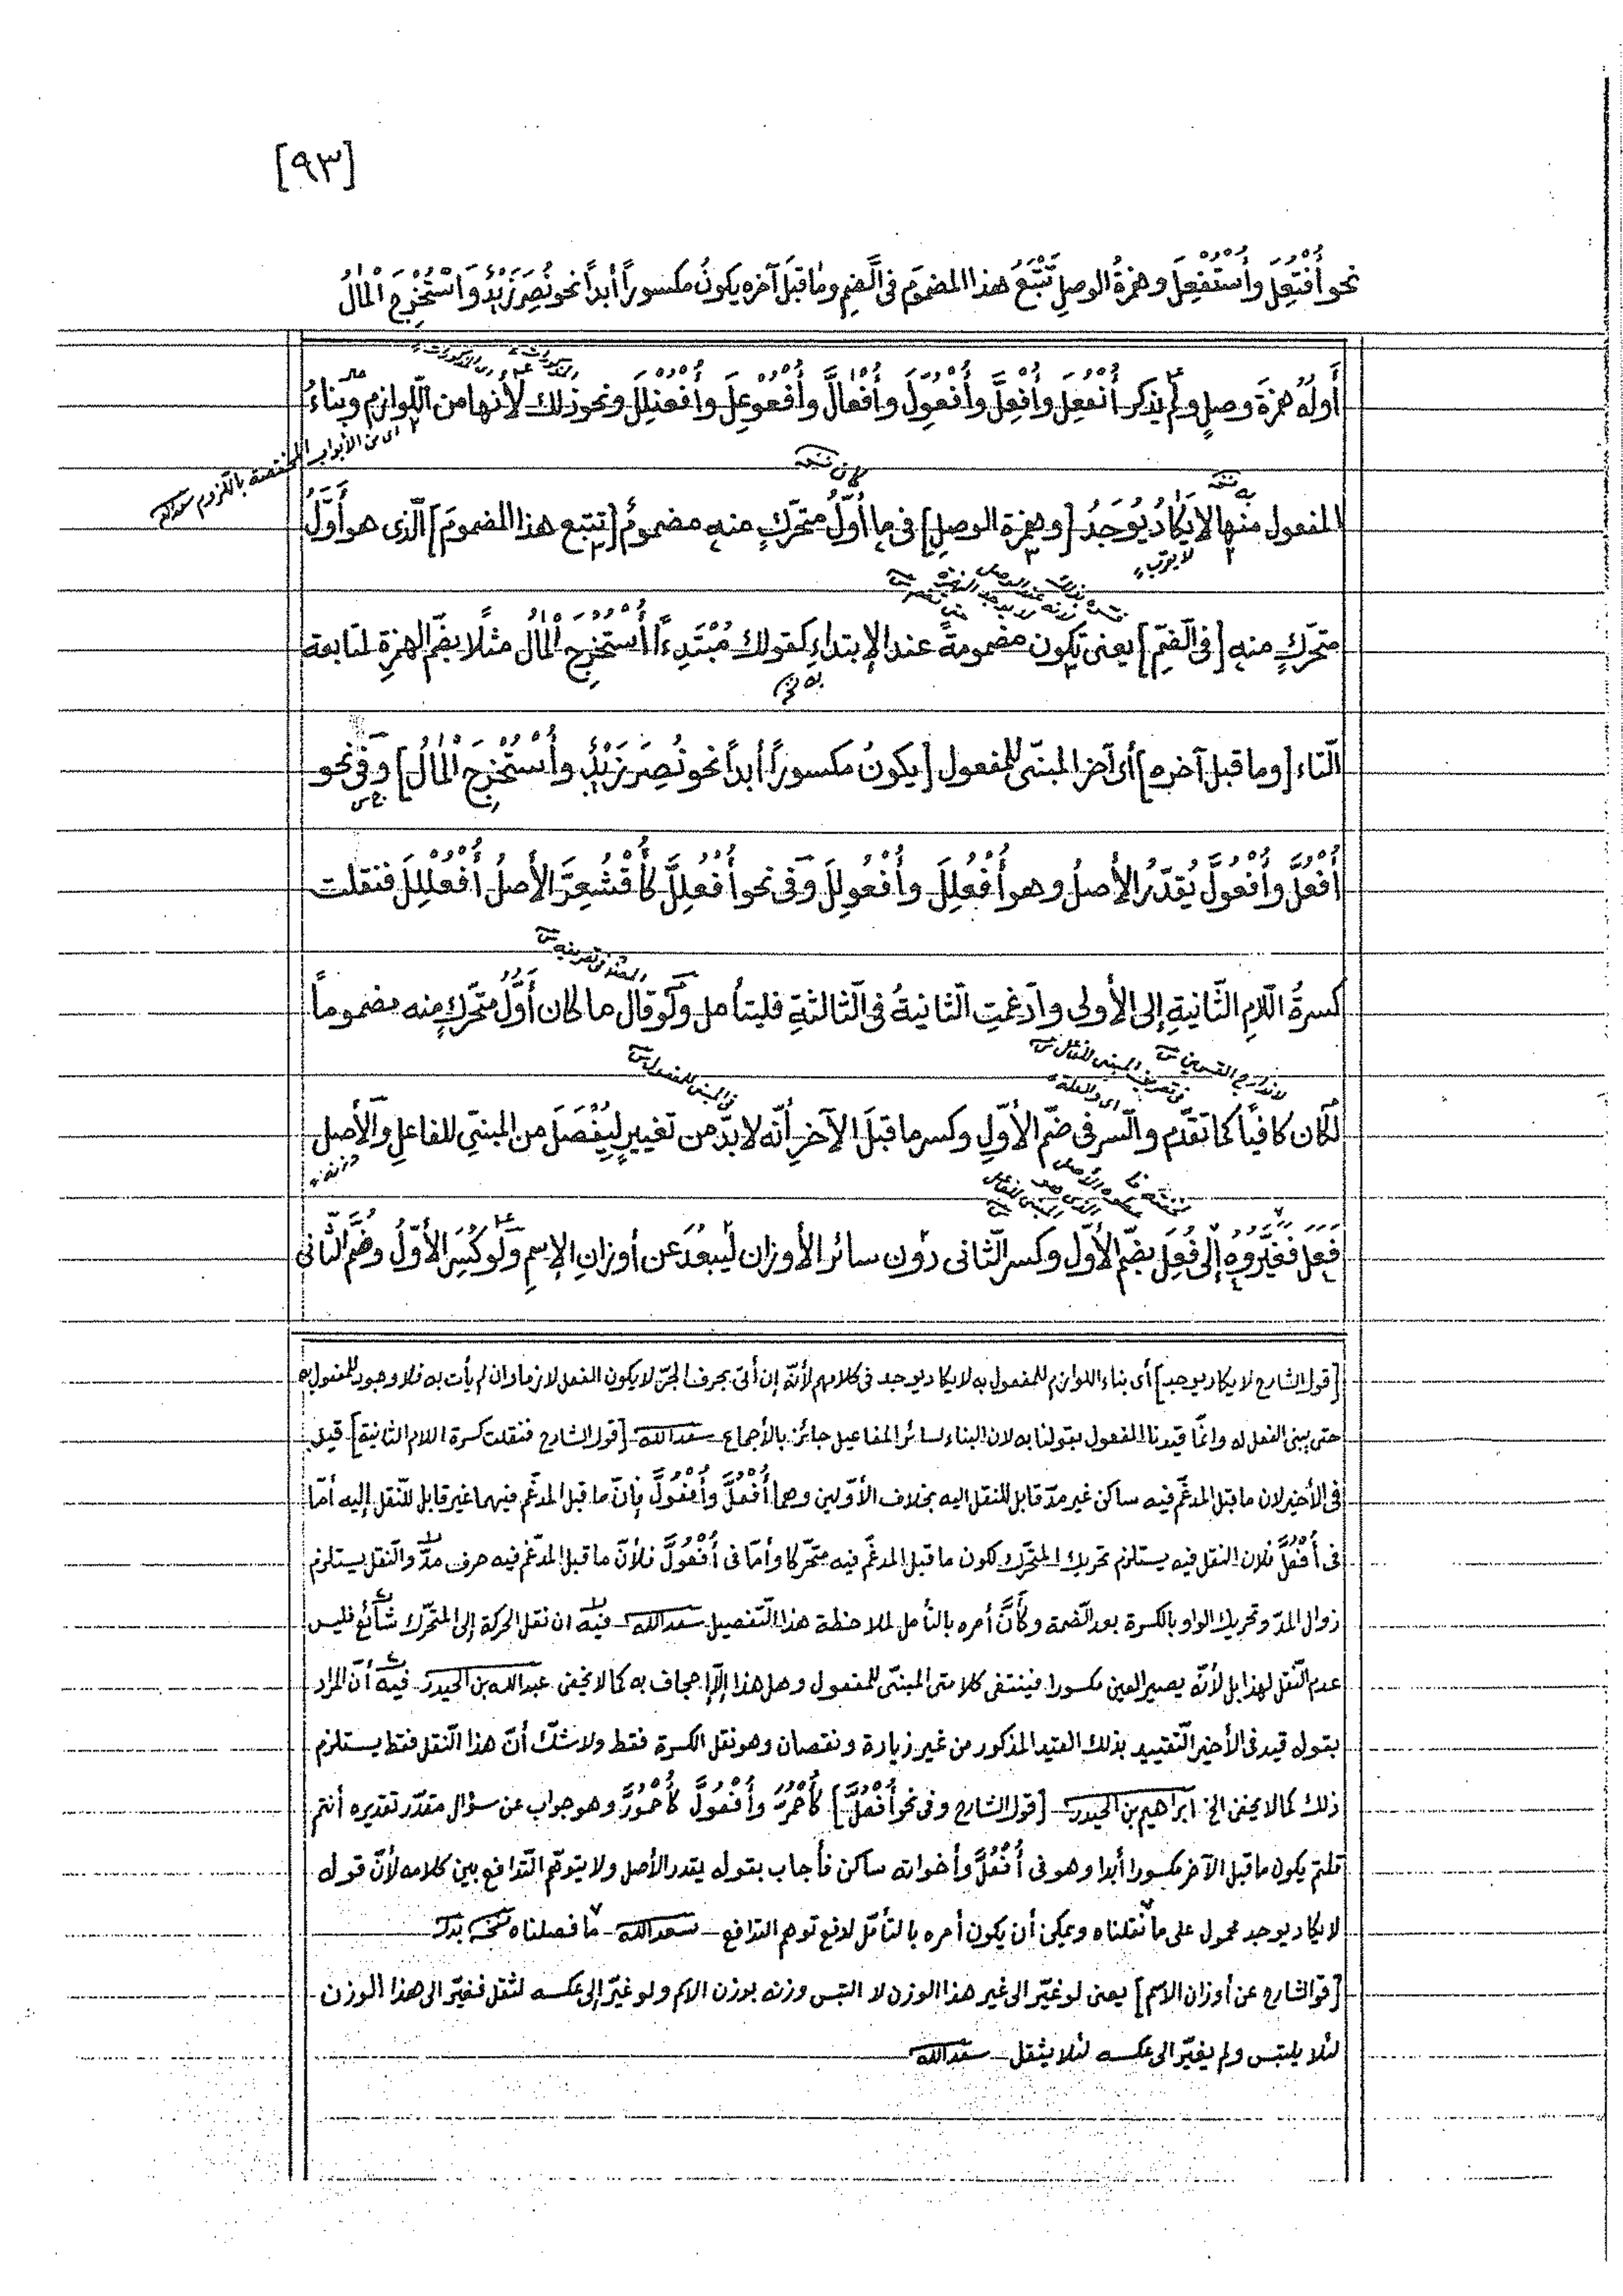 [٩٣]
نحو أُفْتُعِلَ وأُسْتُفْعِلَ وهمزةُ الوصلِ تَتْبَعُ هذا المضمومَ فى الضّمِ وما قبلَ آخره يكونُ مكسوراً أبداً نحو نُصِرَ زَيْدٌ وَاُسْتُخْرِجَ الْمٰالُ
أوّلُهُ همزةَ وصلٍ ولم يذكر اُنْفُعِلَ وأُفْعِلَّ وأُفْعُوِّلَ وأُفْعٰالَّ وأُفْعُوْعِلَ وأُفْعُنْلِلَ ونحو ذلك لأنها من اللّوازم وبناءُ
اى من الأبواب المختصة باللّزوم سعدالله
المفعول منها لا يَكٰادُ يُوجَدُ [وهمزة الوصلِ] فى ما أوّلُ متحرّكٍ منه مضمومٌ [تتبع هذا المضمومَ] الّذى هو أوّلُ
لا يقرب
متحرّكٍ منه [فى الضّمِ] يعنى تكون مضمومةً عند الإبتداءِ كقولك مُبْتَدِءًا أُسْتُخْرِجَ الْمٰالُ مثلًا بضمّ الهمزةِ لمتابعة
التّاء [وما قبل آخره] أى آخر المبنىّ للمفعول [يكونُ مكسوراً أبداً نحو نُصِرَ زَيْدٌ وأُسْتُخْرِجَ الْمٰالُ] وفى نحو
أُفْعُلَّ وأُفْعُولَّ يُقدّرُ الأصلُ وهو أُفْعُلِلَ وأُفْعُولِلَ وفى نحو أُفْعُلِلَّ كأُقْشُعِرَّ الأصلُ أُفْعُلْلِلَ فنقلت
كسرةُ اللّامِ الثّانيةِ إلى الأولى وادّغمتِ الثّانيةُ فى الثّالثةِ فليتأمل ولو قال ما كان أوّلُ متحرّكٍ منه مضموماً
لكان كافياً كما تقدّم والسّر فى ضمّ الأوّلِ وكسر ما قبلَ الآخرِ أنّه لابدّ من تغييرٍ لِيَفْصَلَ من المبنىّ للفاعلِ والأصل
فَعَلَ فَغَيَّرُوهُ إلى فُعِلَ بضمّ الأوّل وكسر الثّانى دون سائر الأوزان ليبعُدَ عن أوزانِ الإسمِ ولو كُسِرَ الأوّلُ وضُمَّ الثّانى
[قول الشارح لا يكاد يوجد] أى بناء اللوازم للمفعول به لا يكاد يوجد فى كلامهم لأنّه إن أتى بحرف الجرّ لا يكون الفعل لازما وان لم يأت به فلا وجود للمفعول به
حتى يبنى الفعل له وانّما قيدنا المفعول بقولنا به لان البناء لسائر المفاعيل جائز بالأجماع سعدالله [قول الشارح فنقلت كسرة اللام الثانية] قيد
فى الأخير لان ما قبل المدغم فيه ساكن غير مدّ قابل للنقل اليه بخلاف الأوّلين وهما أُفْعُلَّ وأُفْعُولَّ فإنّ ما قبل المدغم فيهما غير قابل للنّقل إليه أمّا
فى أُفْعُلَّ فلان النقل فيه يستلزم تحريك المتحرّك لكون ما قبل المدغم فيه متحرّكا وأمّا فى أُفْعُولَّ فلأنّ ما قبل المدغم فيه حرف مدّ والنّقل يستلزم
زوال المدّ وتحريك الواو بالكسرة بعد الضّمة وكأنَّ أمره بالتأمل لملاحظة هذا التّفصيل سعدالله فيه ان نقل الحركة إلى المتحرّك شائع فليس
عدم النّقل لهذا بل لأنّه يصير العين مكسورا فينتفى كلامتى المبنىّ للمفعول وهل هذا إلّا إجحاف به كما لا يخفى عبدالله بن الحيدر فيه أنّ المراد
بقوله قيد فى الأخير التّقييد بذلك القيد المذكور من غير زيادة ونقصان وهو نقل الكسرة فقط ولا شكّ أنّ هذا النّقل فقط يستلزم
ذلك كما لا يخفى الخ ابراهيم بن الحيدر [قول الشارح وفى نحو أُفْعُلَّ] كأُحْمُرَّ وأُفْعُولَّ كأُحْمُورَّ وهو جواب عن سؤال مقدّر تقديره أنتم
قلتم يكون ما قبل الآخر مكسورا أبدا وهو فى أُفْعُلَّ وأخواته ساكن فأجاب بقوله يقدر الأصل ولا يتوهّم التّدافع بين كلامه لأنّ قوله
لا يكاد يوجد محمول على ما نقلناه ويمكن أن يكون أمره بالتأمّل لدفع توهم التدافع سعدالله ما فصلناه نسخة بدل
[قول الشارح عن أوزان الاسم] يعنى لو غيّر الى غير هذا الوزن لالتبس وزنه بوزن الاسم ولو غيّر إلى عكسه لثقل فغيّر الى هذا الوزن
لئلا يلتبس ولم يغيّر الى عكسه لئلا يثقل سعدالله